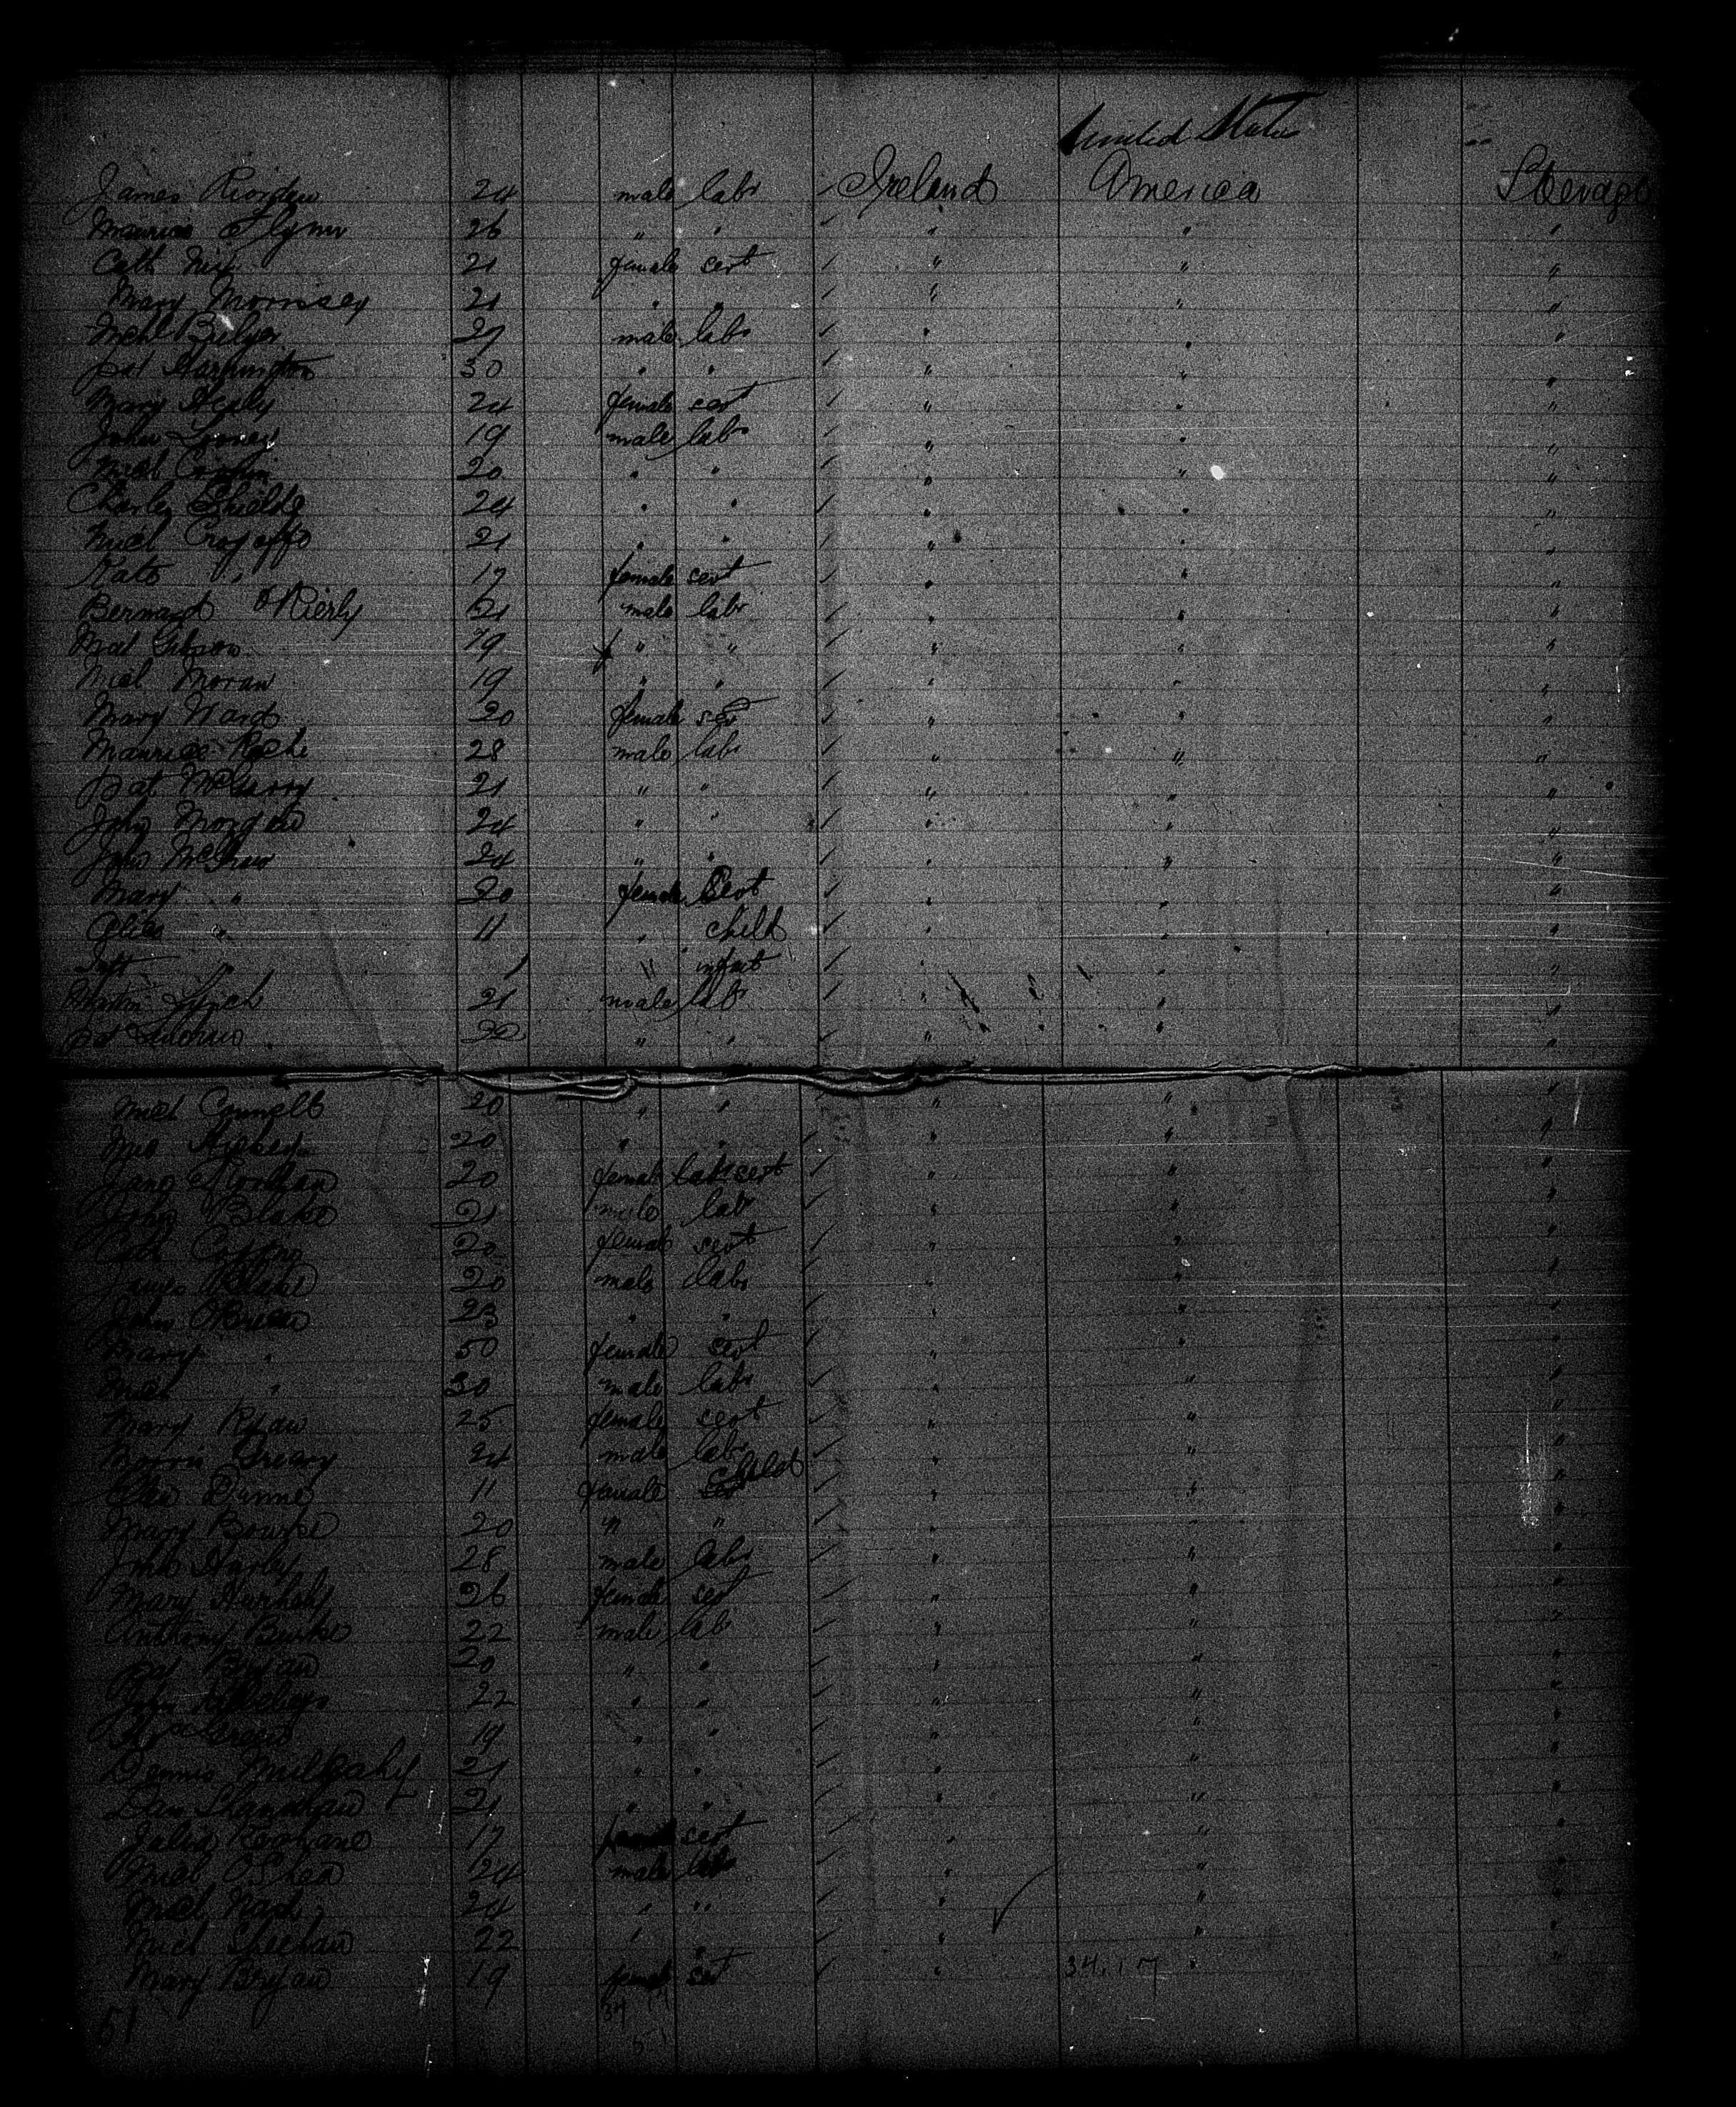 United States
James Riordan 24 male labr Ireland America Steerage
Maurice Flynn 26 " " " " "
Cath Nix 21 female servt " " "
Mary Morrissey 21 " " " " "
Michl 27 male labr " " "
Pat Harrington 30 " " " " "
Mary Healy 24 female servt " " "
John Looney 19 male labr " " "
Michl 20 " " " " "
Charles Shields 24 " " " " "
Michl 21 " " " " "
Kate " 17 female servt " " "
Bernard O'Rierly 21 male labr " " "
Mat Gibson 19 " " " " "
Michl Moran 19 " " " " "
Mary Ward 20 female servt " " "
Maurice Roche 28 male labr " " "
Pat McGarry 21 " " " " "
John Morgan 24 " " " " "
John 24 " " " " "
Mary " 20 female Servt " " "
" 11 " child " " "
Inft " 1 " infant " " "
Martin Lynch 21 male labr " " "
Pat " " " " "
Michl Connell 20 " " " " "
20 " " " " "
Jane 20 female servt " " "
John Blake 21 male labr " " "
20 female servt " " "
James 20 male labr " " "
John OBrien 23 " " " " "
Mary " 50 female servt " " "
Michl " 30 male labr " " "
Mary Ryan 25 female servt " " "
Morris 24 male labr " " "
Dunne 11 female child " " "
Mary Bourke 20 " " " " "
John 28 male labr " " "
Mary 26 female servt " " "
Anthony Burke 22 male labr " " "
Pat Bryan 20 " " " " "
John 22 " " " " "
19 " " " " "
Dennis Mulcahy 21 " " " " "
Dan Shanahan 21 " " " " "
Julia Keohane 17 female servt " " "
Michl O'Shea 24 male labr " " "
Michl Nash 24 " " " " "
Michl Sheehan 22 " " " " "
Mary Bryan 19 female servt " 34.17 " "
34 17
51 51